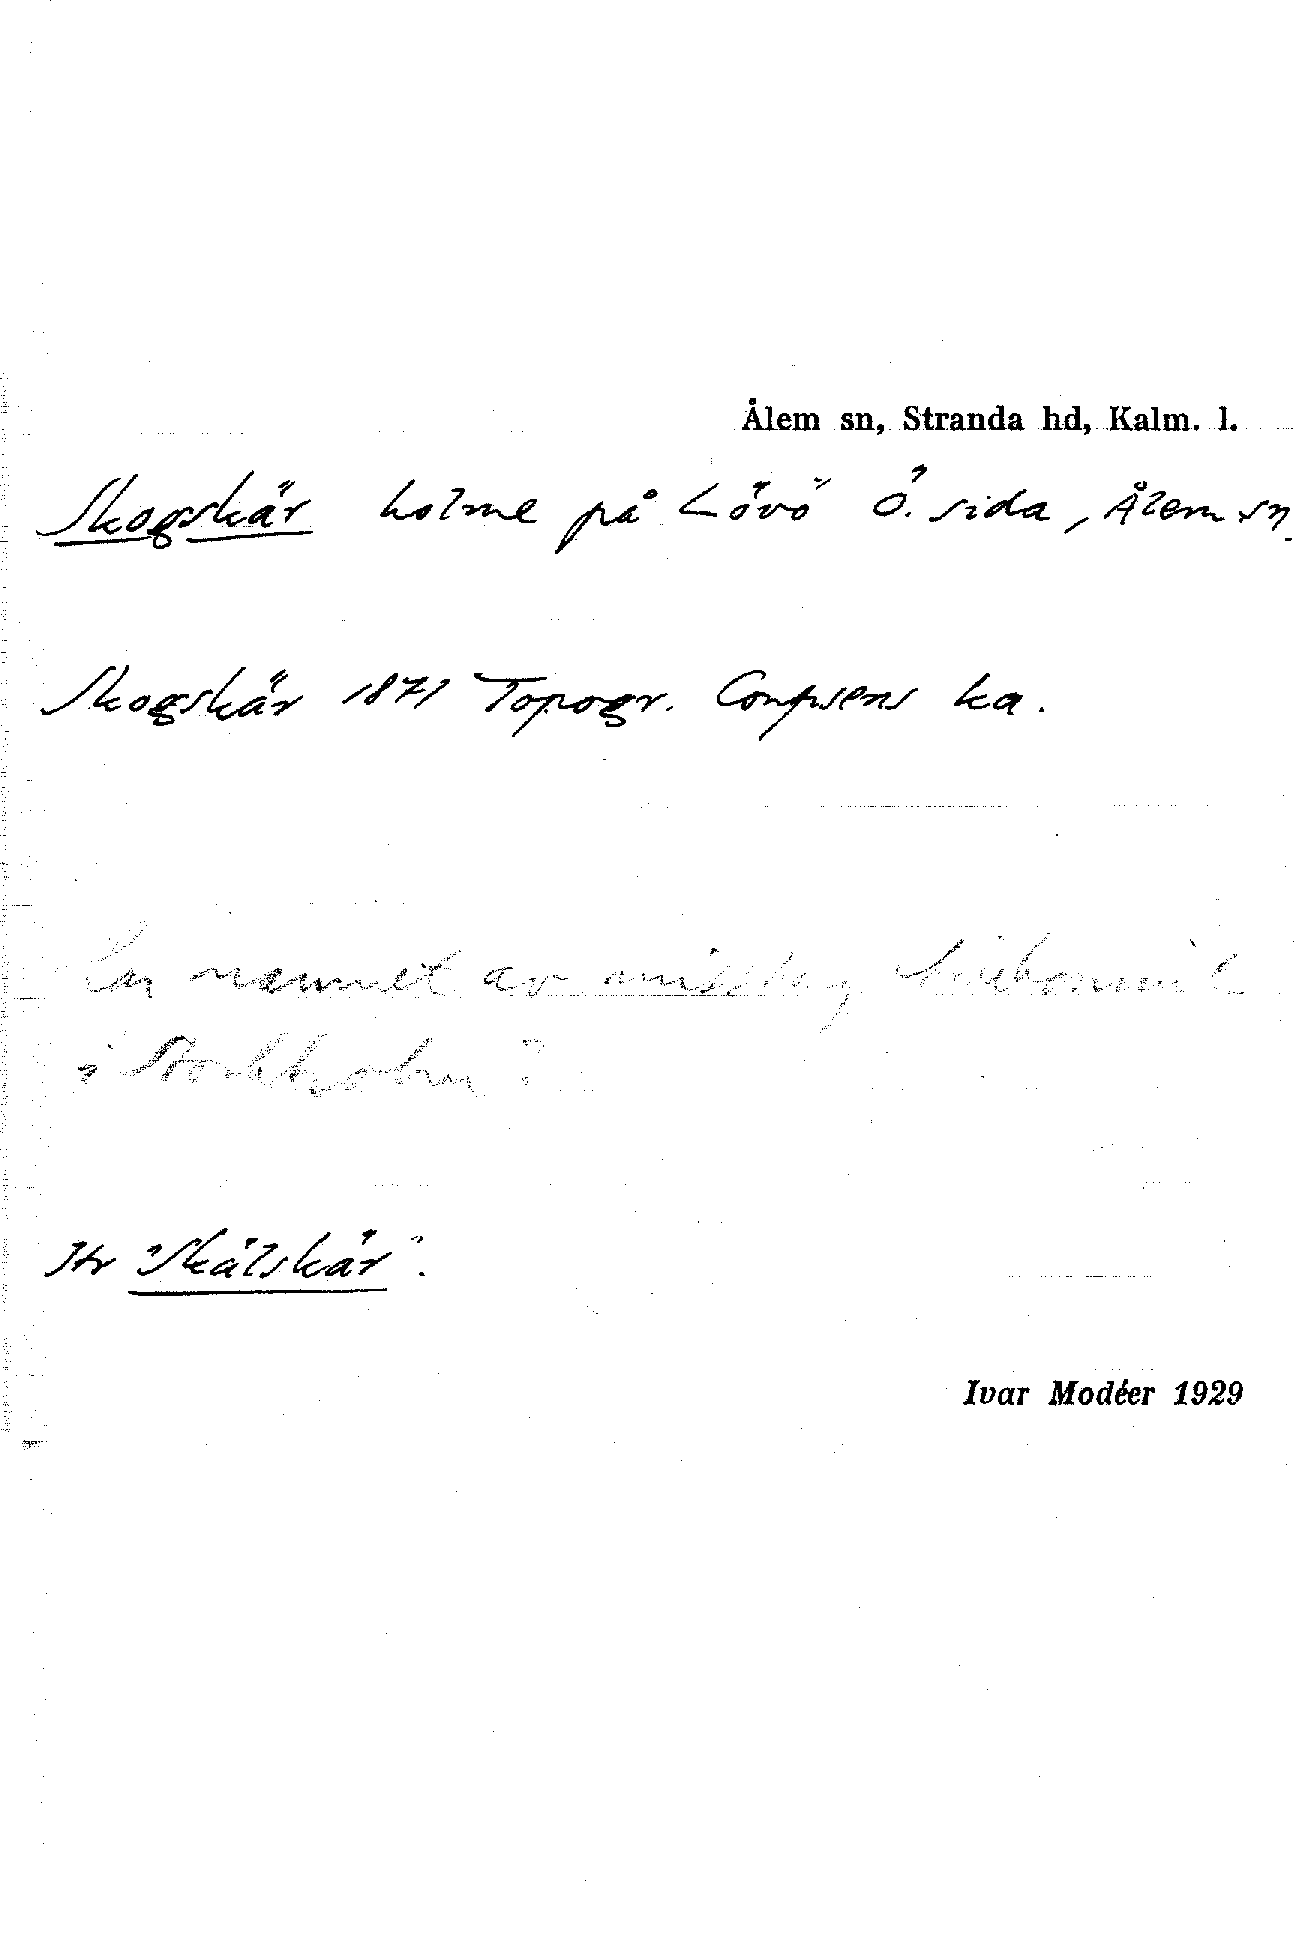 Ålem sn, Stranda hd, Kalm. l.
Skogskär holme på Lövö Ö. sida, Ålem sn.
Skogskär 1871 Topogr. Corpsens ka.
Har namnet av misstag tillkommit
i Stockholm?
Jfr "Skälskär".
Ivar Modéer 1929